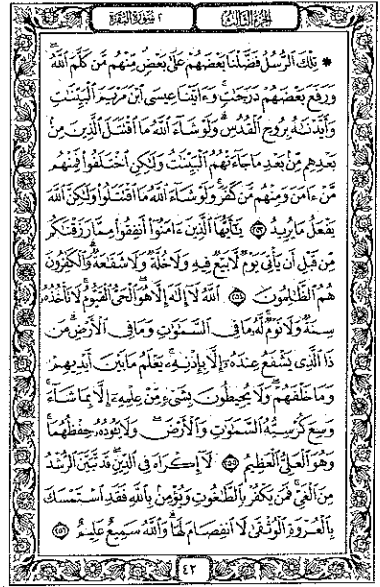 الجزء الثالث
٢ سورة البقرة
* تِلْكَ الرُّسُلُ فَضَّلْنَا بَعْضَهُمْ عَلَىٰ بَعْضٍ مِّنْهُم مَّن كَلَّمَ اللَّهُ
وَرَفَعَ بَعْضَهُمْ دَرَجَاتٍ وَءَاتَيْنَا عِيسَى ابْنَ مَرْيَمَ الْبَيِّنَاتِ
وَأَيَّدْنَاهُ بِرُوحِ الْقُدُسِ وَلَوْ شَاءَ اللَّهُ مَا اقْتَتَلَ الَّذِينَ مِن
بَعْدِهِم مِّن بَعْدِ مَا جَاءَتْهُمُ الْبَيِّنَاتُ وَلَٰكِنِ اخْتَلَفُوا فَمِنْهُم
مَّنْ ءَامَنَ وَمِنْهُم مَّن كَفَرَ وَلَوْ شَاءَ اللَّهُ مَا اقْتَتَلُوا وَلَٰكِنَّ اللَّهَ
يَفْعَلُ مَا يُرِيدُ ٢٥٣ يَٰأَيُّهَا الَّذِينَ ءَامَنُوا أَنفِقُوا مِمَّا رَزَقْنَاكُم
مِّن قَبْلِ أَن يَأْتِيَ يَوْمٌ لَّا بَيْعٌ فِيهِ وَلَا خُلَّةٌ وَلَا شَفَاعَةٌ وَالْكَافِرُونَ
هُمُ الظَّالِمُونَ ٢٥٤ اللَّهُ لَا إِلَٰهَ إِلَّا هُوَ الْحَيُّ الْقَيُّومُ لَا تَأْخُذُهُ
سِنَةٌ وَلَا نَوْمٌ لَّهُ مَا فِي السَّمَٰوَٰتِ وَمَا فِي الْأَرْضِ مَن
ذَا الَّذِي يَشْفَعُ عِندَهُ إِلَّا بِإِذْنِهِ يَعْلَمُ مَا بَيْنَ أَيْدِيهِمْ
وَمَا خَلْفَهُمْ وَلَا يُحِيطُونَ بِشَيْءٍ مِّنْ عِلْمِهِ إِلَّا بِمَا شَاءَ
وَسِعَ كُرْسِيُّهُ السَّمَٰوَٰتِ وَالْأَرْضَ وَلَا يَئُودُهُ حِفْظُهُمَا
وَهُوَ الْعَلِيُّ الْعَظِيمُ ٢٥٥ لَا إِكْرَاهَ فِي الدِّينِ قَد تَّبَيَّنَ الرُّشْدُ
مِنَ الْغَيِّ فَمَن يَكْفُرْ بِالطَّاغُوتِ وَيُؤْمِن بِاللَّهِ فَقَدِ اسْتَمْسَكَ
بِالْعُرْوَةِ الْوُثْقَىٰ لَا انفِصَامَ لَهَا وَاللَّهُ سَمِيعٌ عَلِيمٌ ٢٥٦
٤٢